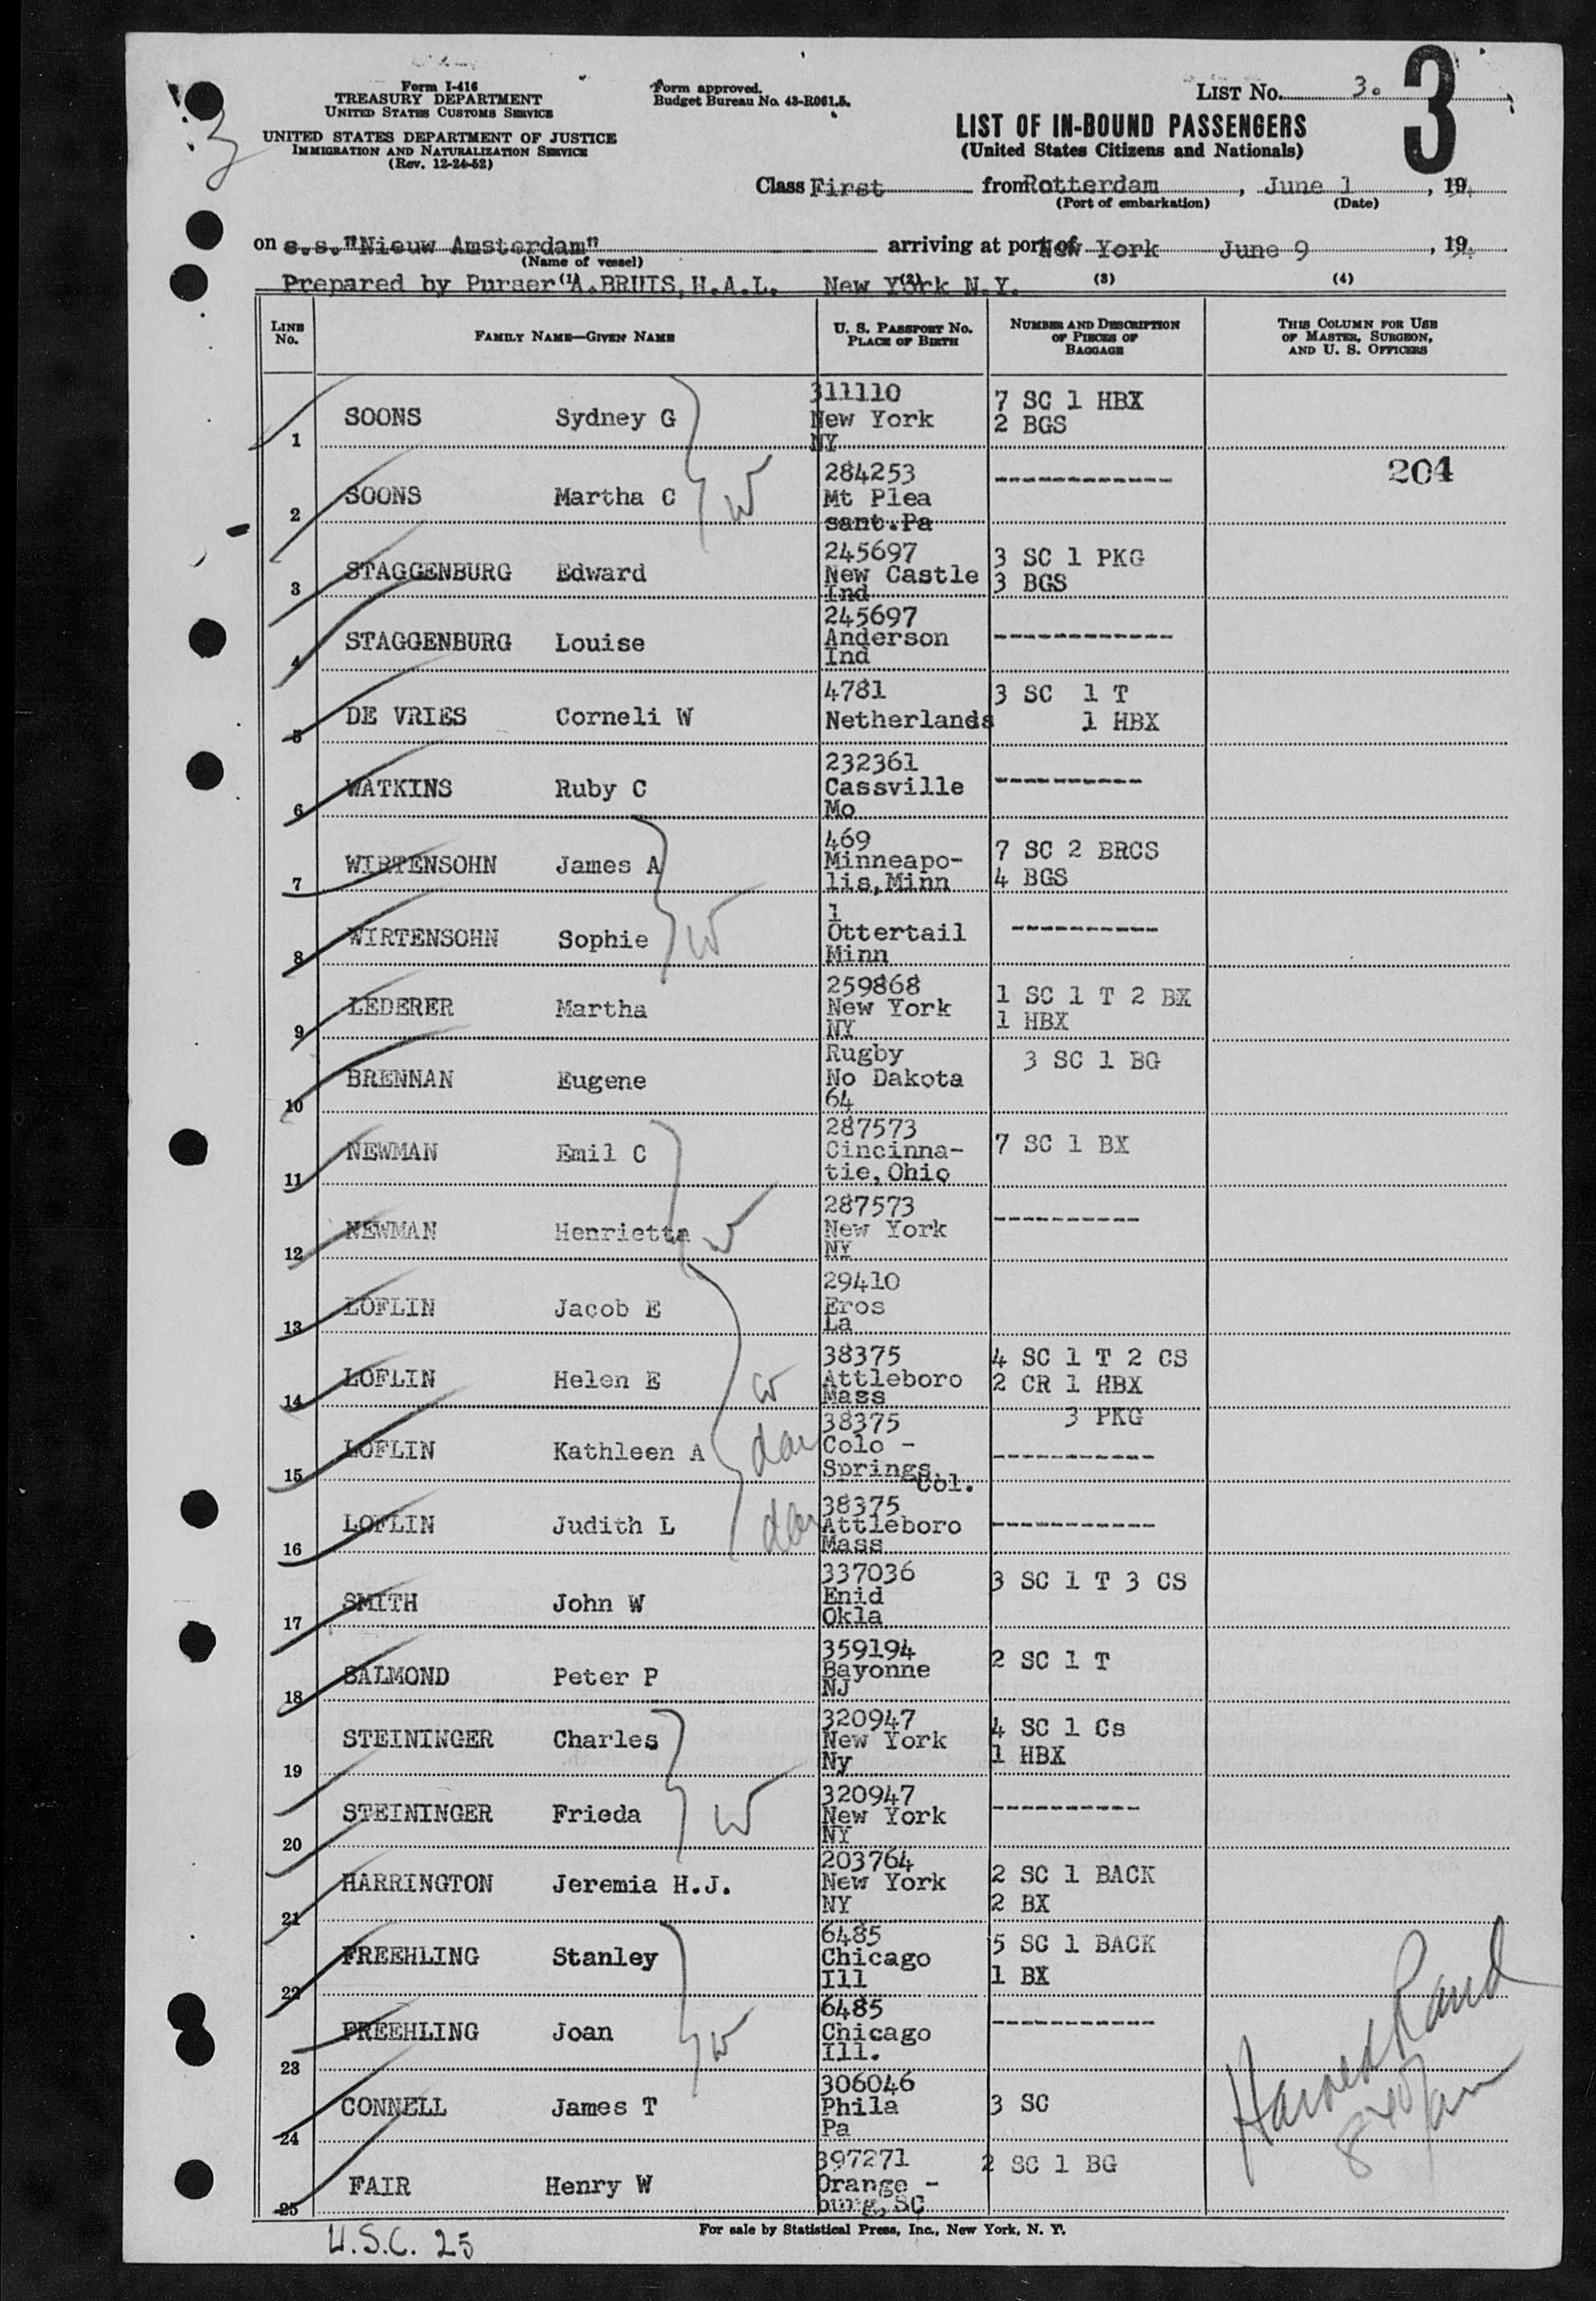 Form I-416
TREASURY DEPARTMENT
UNITED STATES CUSTOMS SERVICE
UNITED STATES DEPARTMENT OF JUSTICE
IMMIGRATION AND NATURALIZATION SERVICE
(Rev. 12-24-52)
Form approved.
Budget Bureau No. 43-R061.5.
LIST No. 3.
3
3
LIST OF IN-BOUND PASSENGERS
(United States Citizens and Nationals)
Class First from Rotterdam, June 1, 19
(Port of embarkation) (Date)
on s.s."Nieuw Amsterdam" arriving at port of New York June 9, 19
(Name of vessel)
Prepared by Purser A.BRUIS, H.A.L. New York N.Y.
(1) (2) (3) (4)
LINE No. FAMILY NAME—GIVEN NAME U. S. PASSPORT No. PLACE OF BIRTH NUMBER AND DESCRIPTION OF PIECES OF BAGGAGE THIS COLUMN FOR USE OF MASTER, SURGEON, AND U. S. OFFICERS
1 SOONS Sydney G 311110 New York NY 7 SC 1 HBX 2 BGS
2 SOONS Martha C W 284253 Mt Plea sant.Pa ------------- 204
3 STAGGENBURG Edward 245697 New Castle Ind 3 SC 1 PKG 3 BGS
4 STAGGENBURG Louise 245697 Anderson Ind -------------
5 DE VRIES Corneli W 4781 Netherlands 3 SC 1 T 1 HBX
6 WATKINS Ruby C 232361 Cassville Mo ----------
7 WIRTENSOHN James A 469 Minneapo- lis,Minn 7 SC 2 BRCS 4 BGS
8 WIRTENSOHN Sophie W 1 Ottertail Minn ----------
9 LEDERER Martha 259868 New York NY 1 SC 1 T 2 BX 1 HBX
10 BRENNAN Eugene Rugby No Dakota 64 3 SC 1 BG
11 NEWMAN Emil C 287573 Cincinna- tie,Ohio 7 SC 1 BX
12 NEWMAN Henrietta W 287573 New York NY ----------
13 LOFLIN Jacob E 29410 Eros La
14 LOFLIN Helen E W 38375 Attleboro Mass 4 SC 1 T 2 CS 2 CR 1 HBX 3 PKG
15 LOFLIN Kathleen A dau 38375 Colo - Springs, Col. -----------
16 LOFLIN Judith L dau 38375 Attleboro Mass -----------
17 SMITH John W 337036 Enid Okla 3 SC 1 T 3 CS
18 SALMOND Peter P 359194 Bayonne NJ 2 SC 1 T
19 STEININGER Charles 320947 New York Ny 4 SC 1 Cs 1 HBX
20 STEININGER Frieda W 320947 New York NY ----------
21 HARRINGTON Jeremia H.J. 203764 New York NY 2 SC 1 BACK 2 BX
22 FREEHLING Stanley 6485 Chicago Ill 5 SC 1 BACK 1 BX
23 FREEHLING Joan W 6485 Chicago Ill. -----------
24 CONNELL James T 306046 Phila Pa 3 SC
25 FAIR Henry W 397271 Orange - burg,SC 2 SC 1 BG
Harold Rand
For sale by Statistical Press, Inc., New York, N. Y.
U.S.C. 25